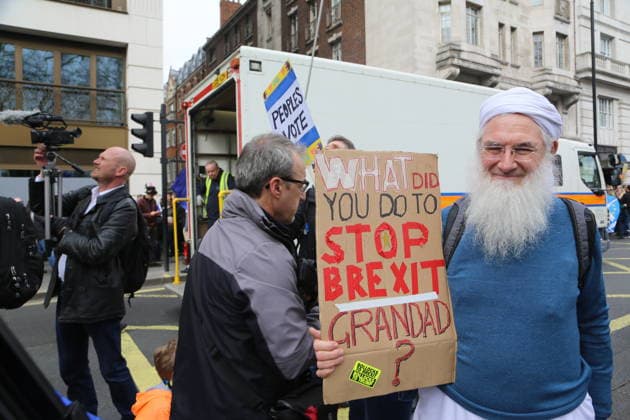 PEOPLES
VOTE
WHAT DID
YOU DO TO
STOP
BREXIT
GRANDAD
?